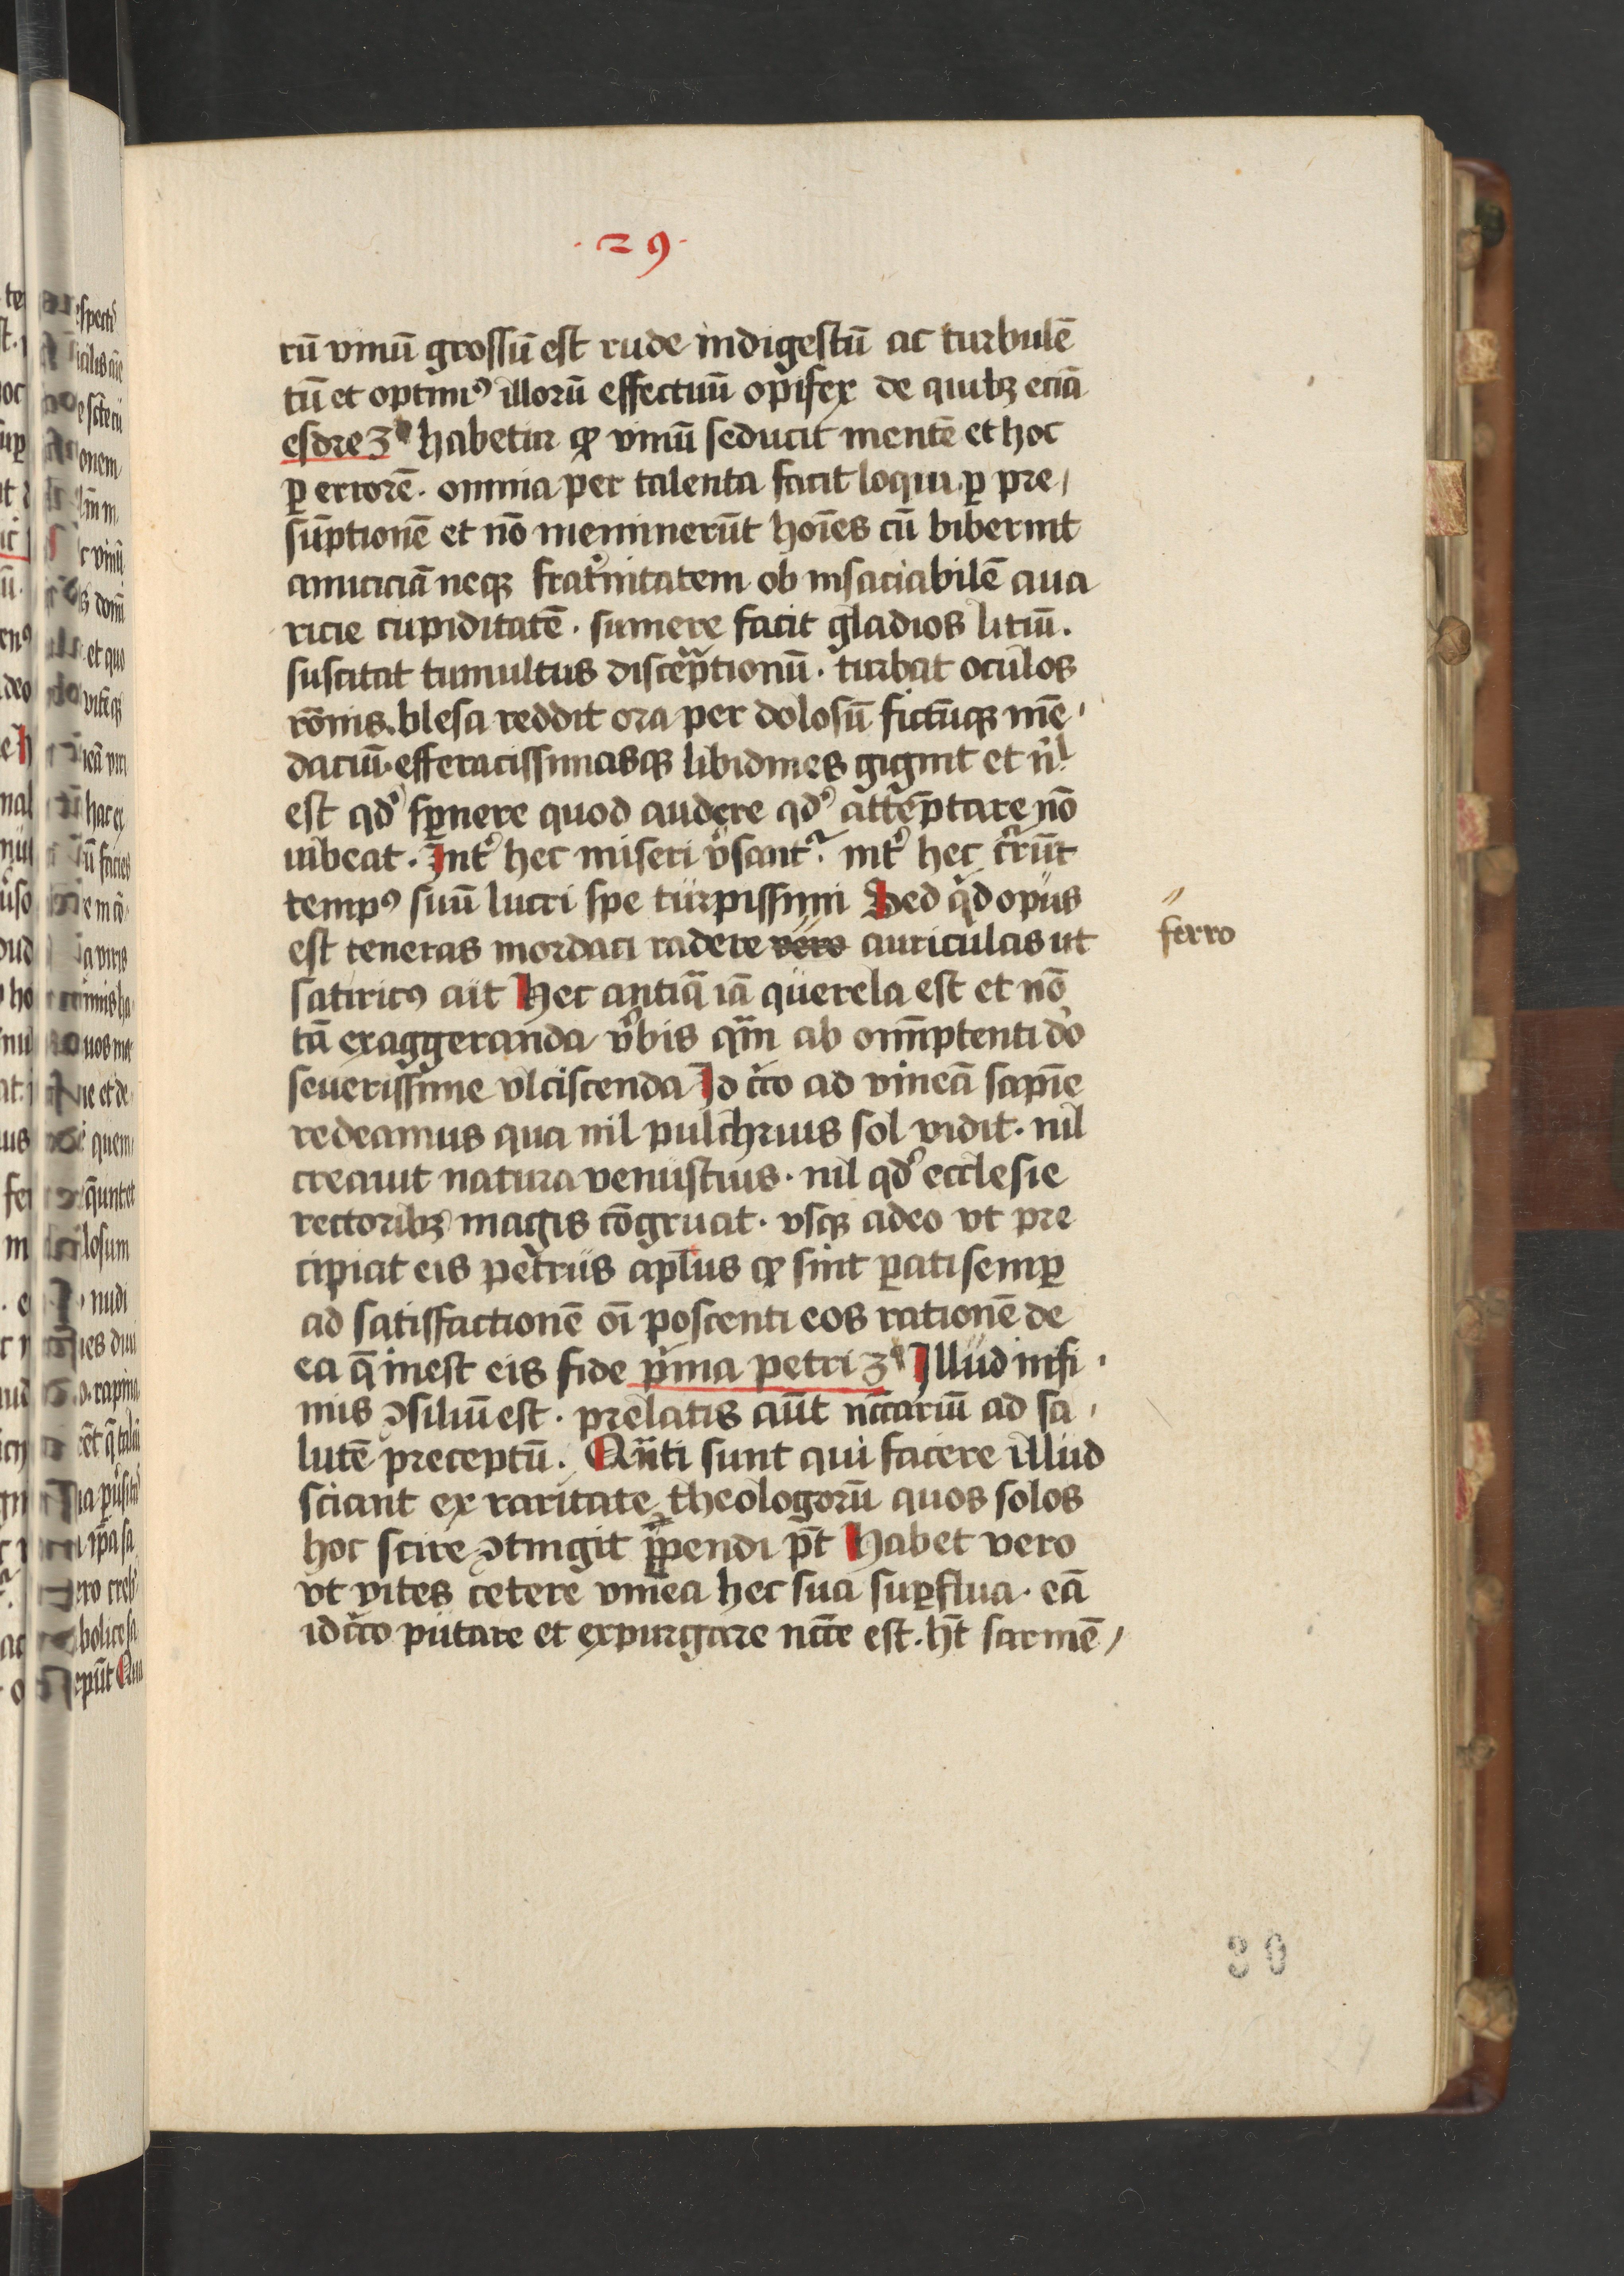 ·29·
rū vinū grossū est rude indigestū ac turbulē
tū et optimꝰ illorū effectuū opifex de quibꝫ eciā
esdre 3° habetur ꝙ vinū seducit mentē et hoc
ꝑ errorē. omnia per talenta facit loqui. ꝑ pre/
sūptionē et nō meminerūt hoīes cū biberint
amiciciā neqꝫ frat̓nitatem ob insaciabilē aua
ricie cupiditatē. sumere facit gladios litiū.
suscitat tumultus disceptionū. turbat oculos
rōnis. blesa reddit ora per dolosū fictūqꝫ mē/
daciū. efferacissimasqꝫ libidines gignit et n̄l
est qd̓ spernere quod audere qd̓ attēptare nō
iubeat. Int̓ hec miseri v̓sant᷑. int̓ hec t̓rūt
tempꝰ suū lucri spe turpissimi Sed qͥd opus
est teneras mordaci radere vero auriculas ut
ferro
satiricꝰ ait Hec antiq̄ iā querela est et nō
tā exaggeranda v̓bis qͣm ab om̄ptenti d̓o
seuerissime vlciscenda Id cͥco ad vineā sapīe
redeamus qua nil pulchrius sol vidit. nil
creauit natura venustius. nil qd̓ ecclesie
rectoribꝫ magis cōgruat. vsqꝫ adeo vt pre
cipiat eis petrus apl̄us ꝙ sint ꝑati semꝑ
ad satisfactionē oī poscenti eos rationē de
ea q̄ inest eis fide pͥma petri 3° Illud infi/
mis ꝯsiliū est. prelatis aūt nc̄cariū ad sa/
lutē preceptū. Qͣnti sunt qui facere illud
sciant ex raritate theologorū quos solos
hoc scire ꝯtingit ꝑpendi pt̄ Habet vero
vt vites cetere vinea hec sua suꝑflua. eā
idcͥco putare et expurgare nc̄ce est. ht̄ sarmē/
30